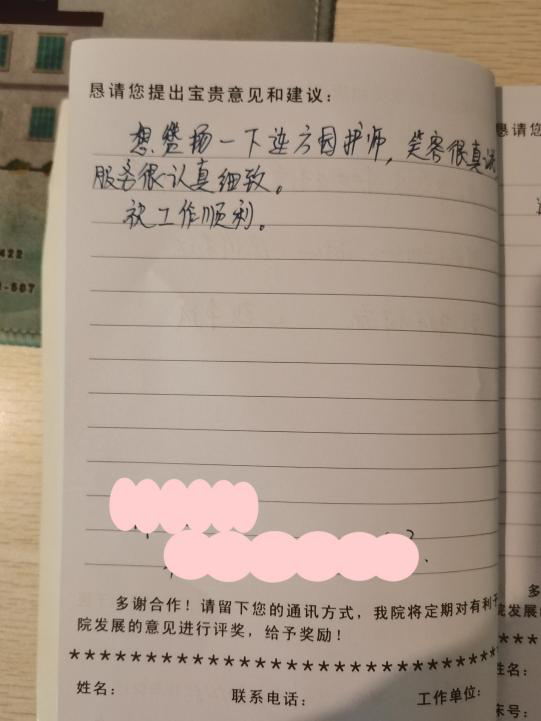 恳请您提出宝贵意见和建议：
想赞扬一下连方园护师，笑容很真诚
服务很认真细致。
祝工作顺利。
多谢合作！请留下您的通讯方式，我院将定期对有利于
院发展的意见进行评奖，给予奖励！
*****************************
姓名：
联系电话：
工作单位：
422
-607
恳请您
多
院发展的
***
姓名：
床号：